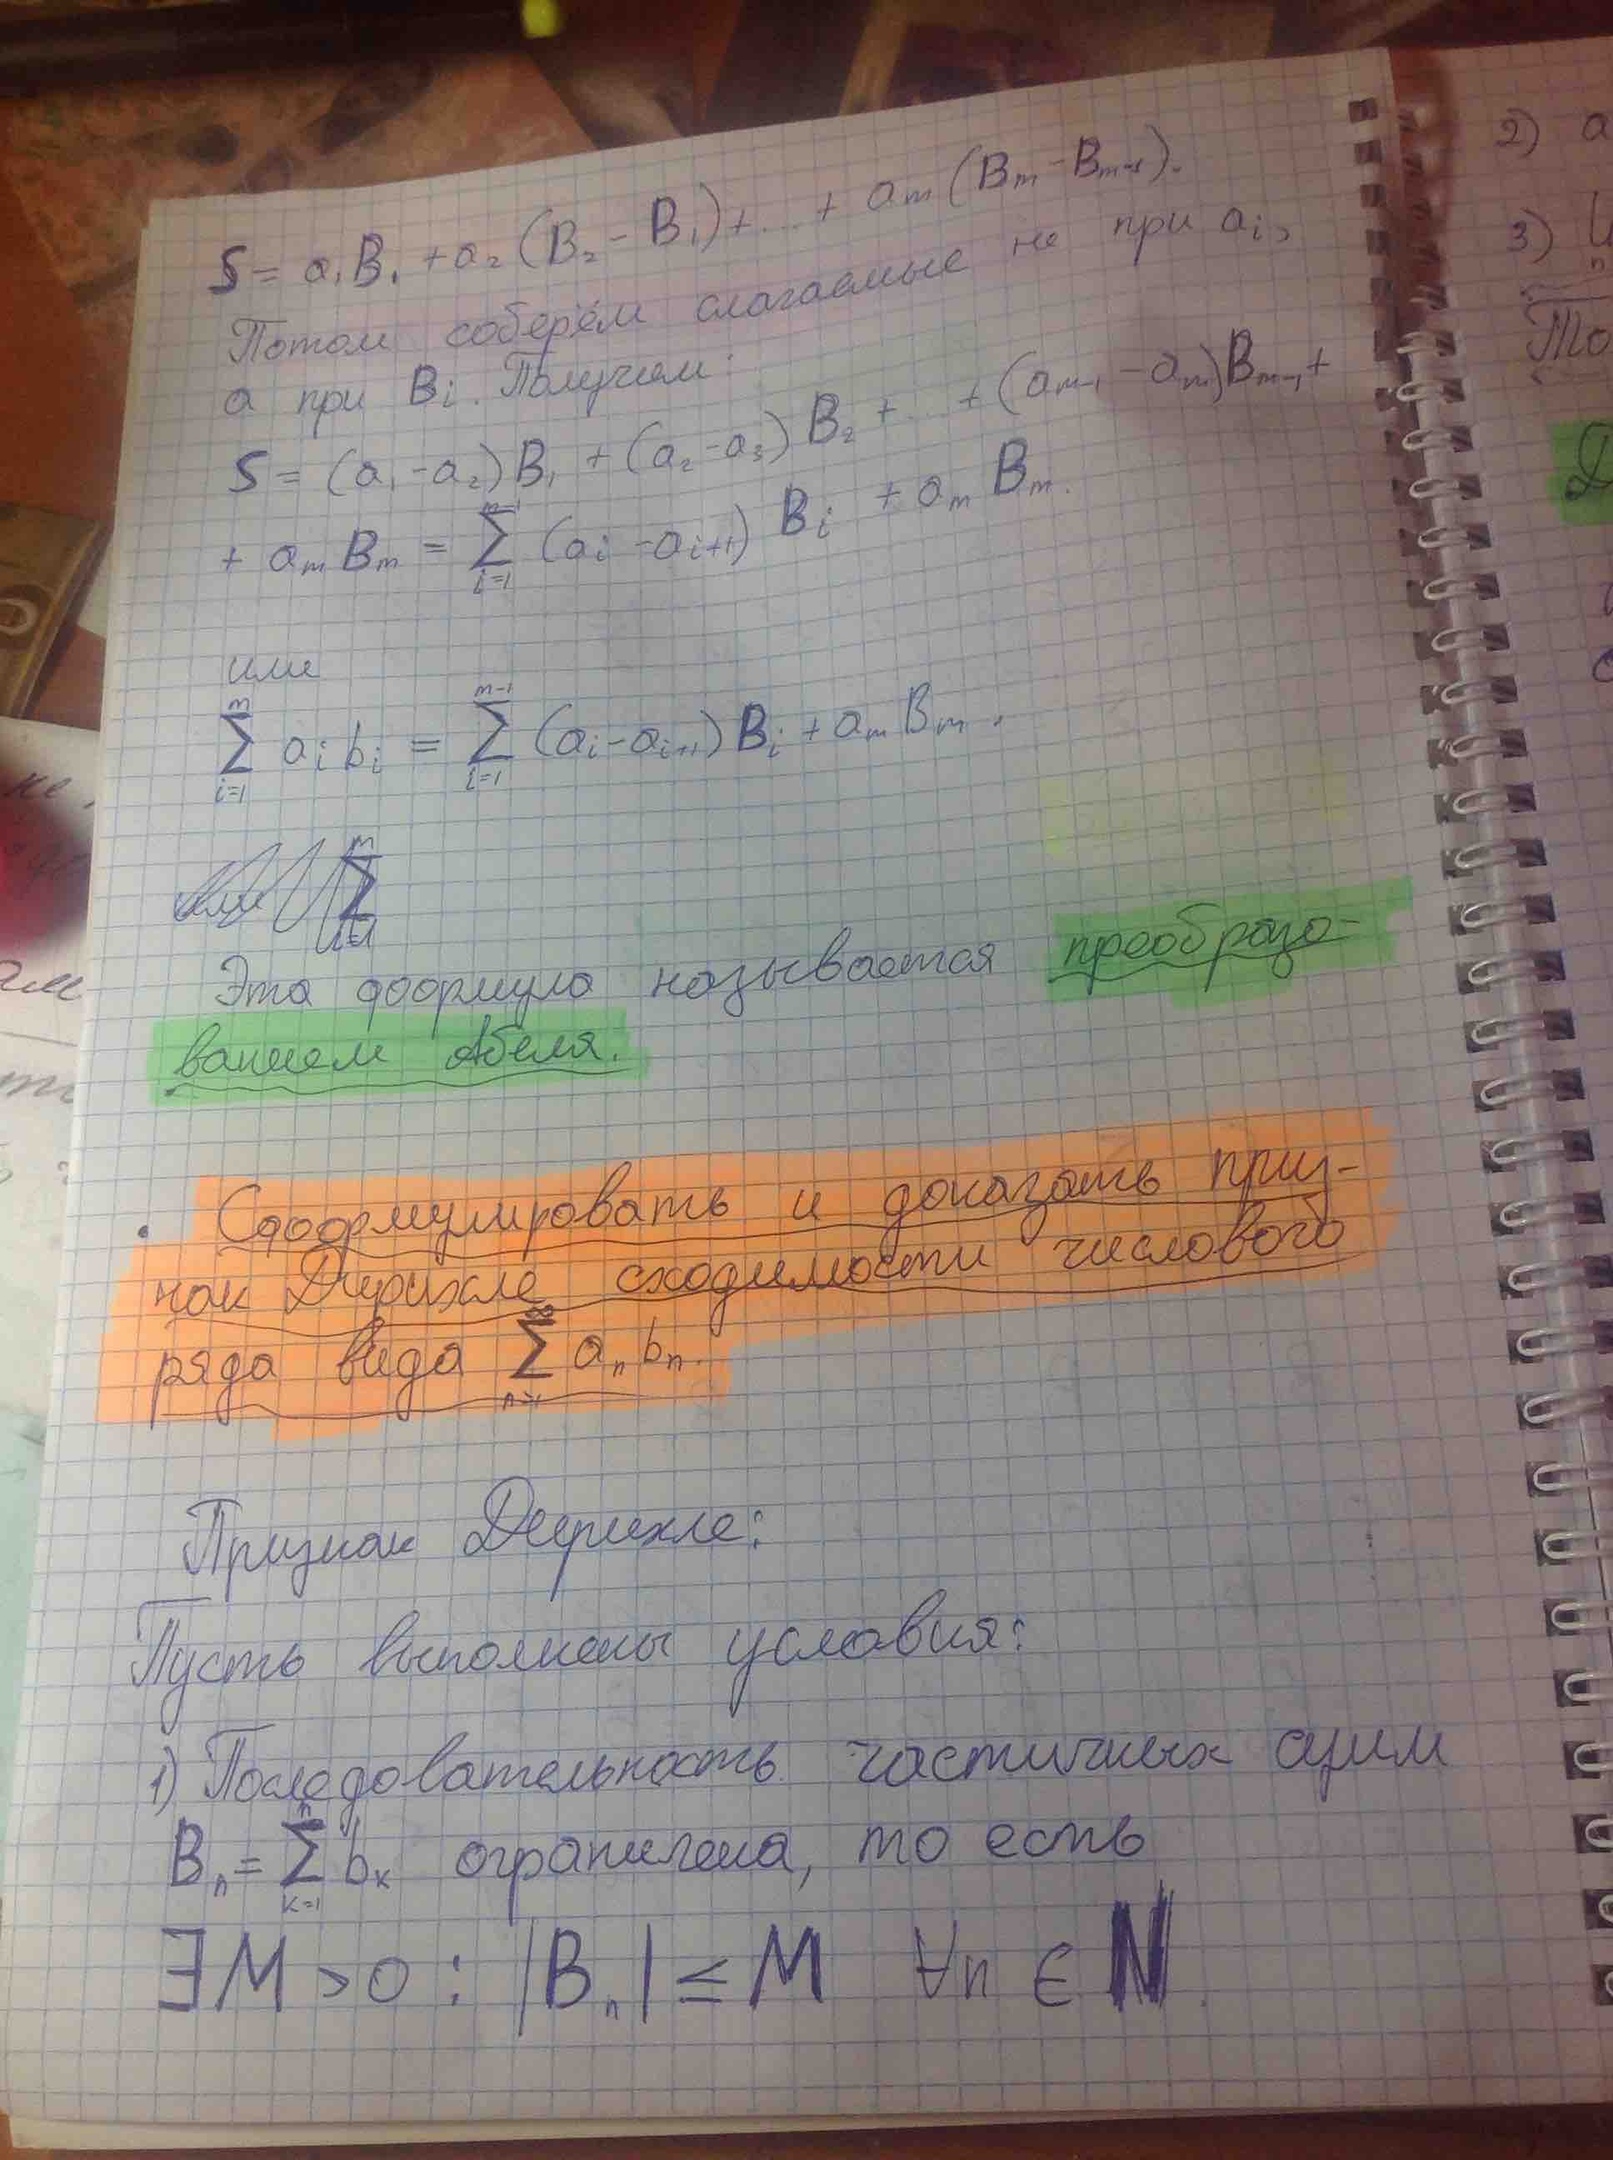 S = a₁B₁ + a₂(B₂ - B₁) + ... + aₘ(Bₘ - Bₘ₋₁).
Потом соберём слагаемые не при aᵢ,
а при Bᵢ. Получим:
S = (a₁ - a₂)B₁ + (a₂ - a₃)B₂ + ... + (aₘ₋₁ - aₘ)Bₘ₋₁ +
+ aₘBₘ = ∑_{i=1}^{m-1} (aᵢ - aᵢ₊₁)Bᵢ + aₘBₘ.
или
∑_{i=1}^{m} aᵢbᵢ = ∑_{i=1}^{m-1} (aᵢ - aᵢ₊₁)Bᵢ + aₘBₘ.
Эта формула называется преобразо-
ванием Абеля.
• Сформулировать и доказать приз-
нак Дирихле сходимости числового
ряда вида ∑_{n=1}^{∞} aₙbₙ.
Признак Дирихле:
Пусть выполнены условия:
1) Последовательность частичных сумм
Bₙ = ∑_{k=1}^{n} bₖ ограничена, то есть
∃M > 0 : |Bₙ| ≤ M ∀n ∈ N.
2) a
3)